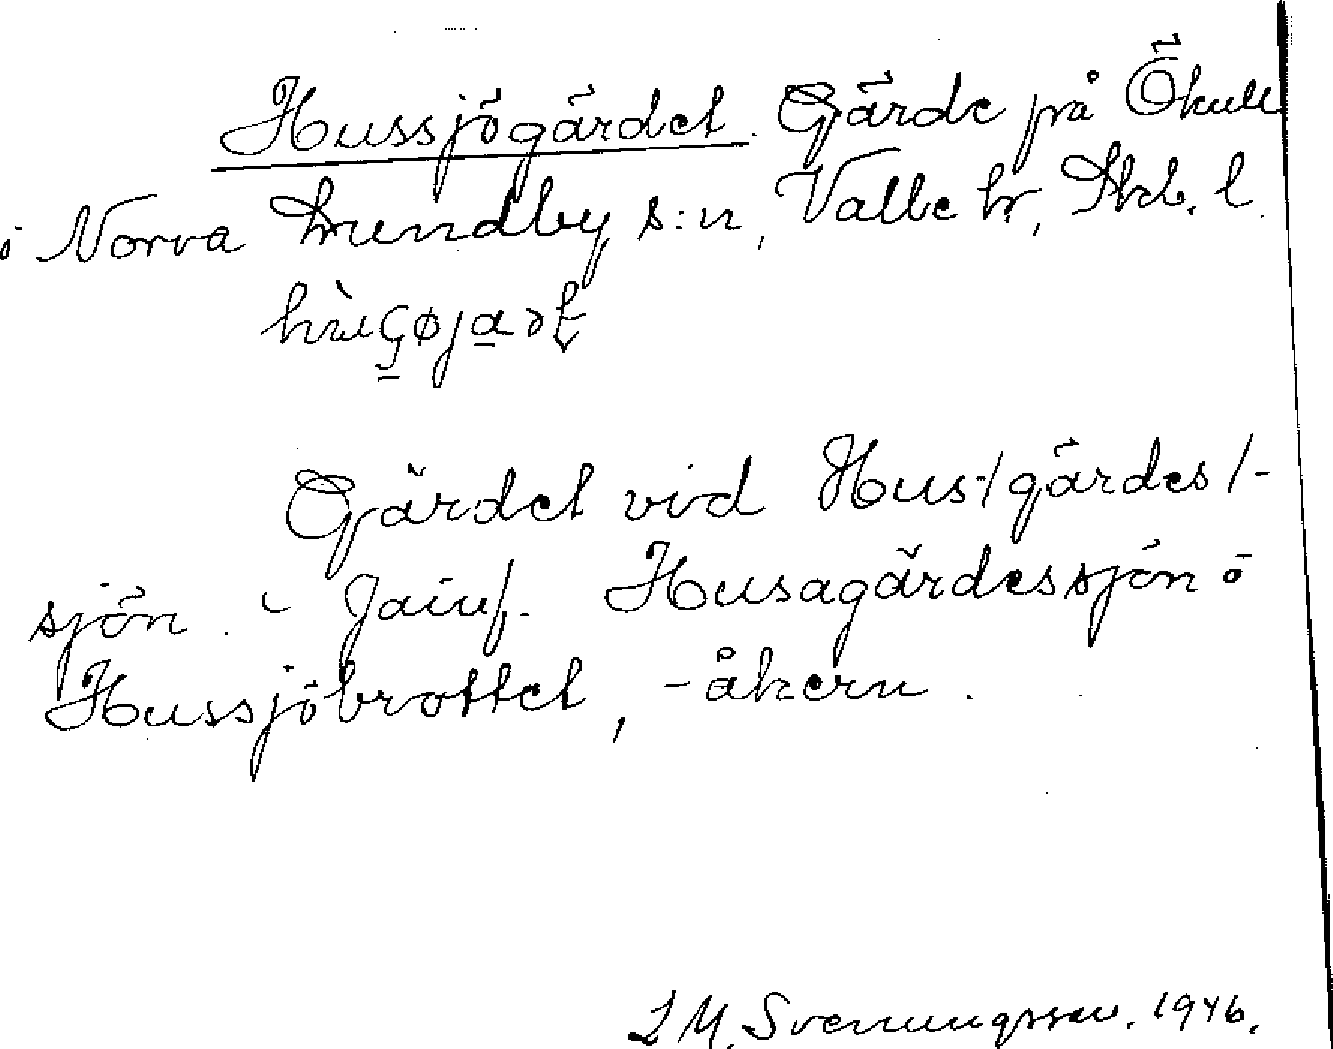 Hussjögärdet. Gärde på Ökull
i Norra Lundby s:n, Valle hr, Skb. l.
Gärdet vid Hus-/gärdes/-
sjön. - Jämf. Husagärdessjön o
Hussjöbrottet, -åkern.
L M. Svenungsson. 1946.